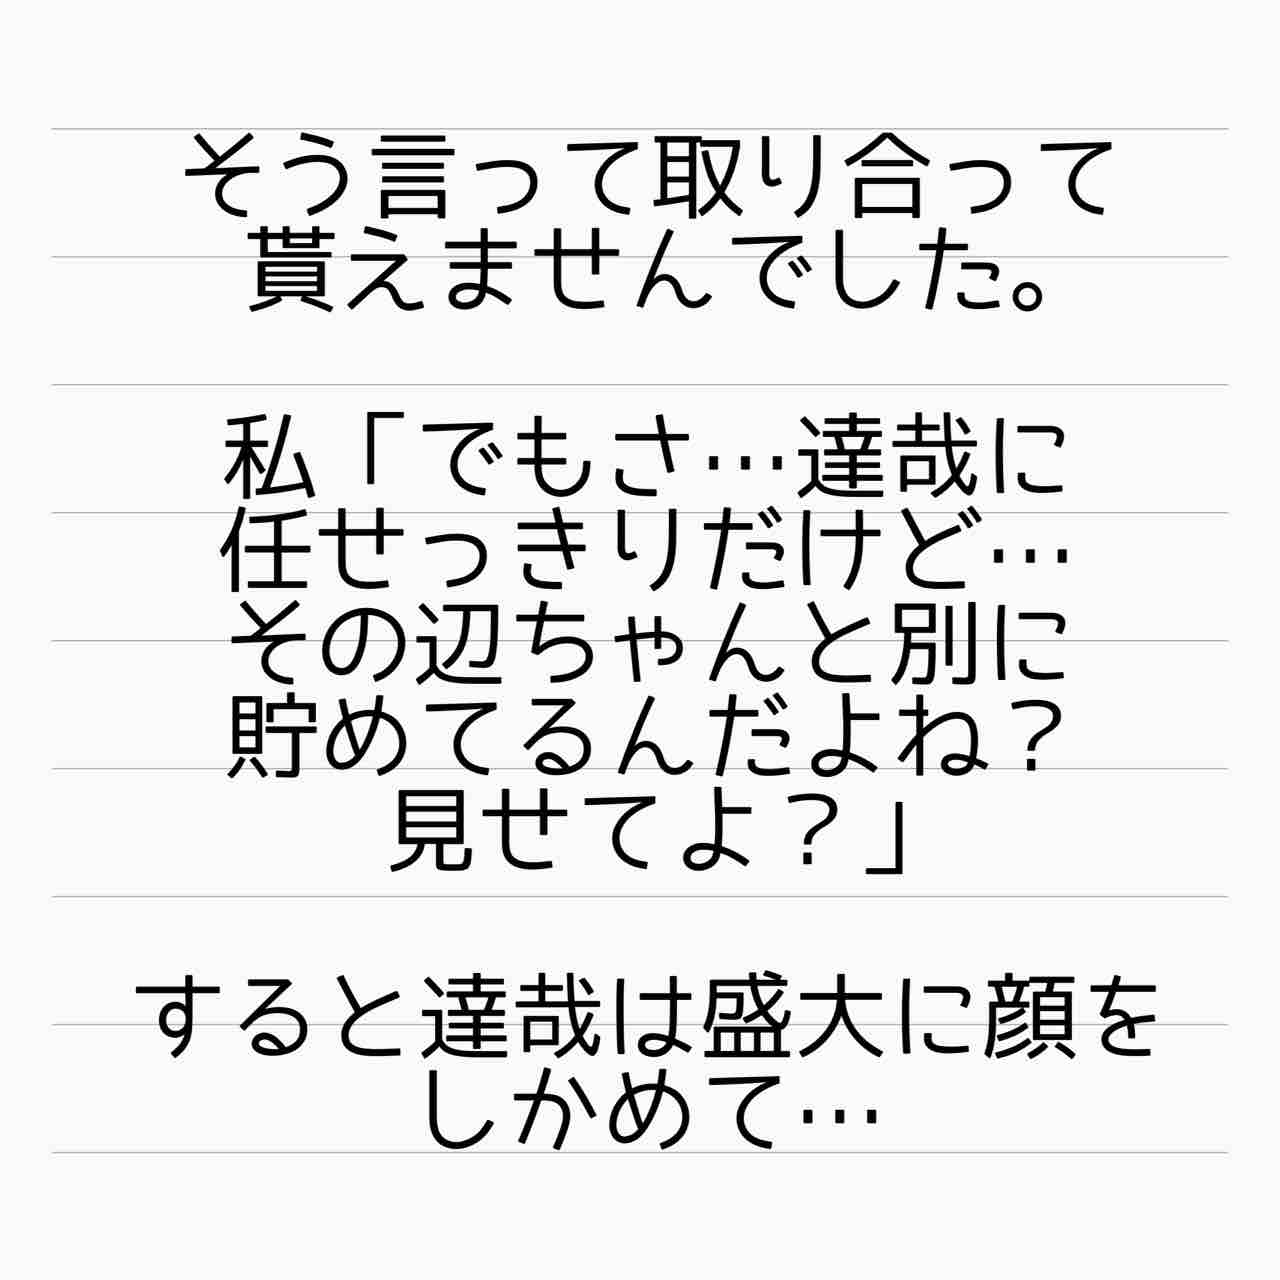 そう言って取り合って
貰えませんでした。
私「でもさ…達哉に
任せっきりだけど…
その辺ちゃんと別に
貯めてるんだよね？
見せてよ？」
すると達哉は盛大に顔を
しかめて…